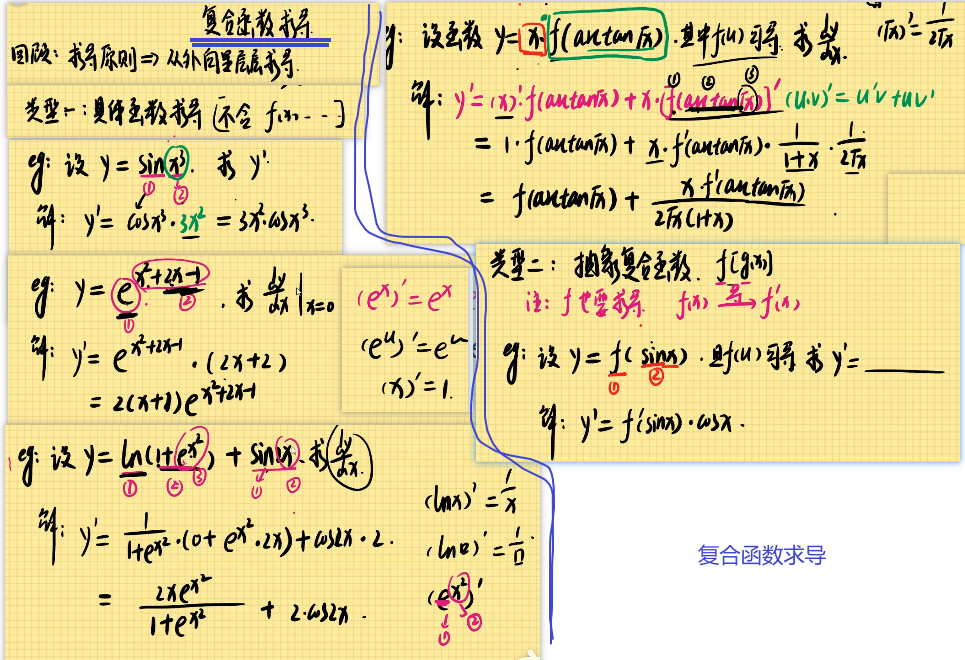 复合函数求导
回顾：求导原则⇒从外向里层层求导.
类型一：具体函数求导（不含 f(x)...）
eg: 设 y = sin x³. 求 y'
① ②
解: y' = cosx³·3x² = 3x²·cosx³.
eg: y = e^(x²+2x-1). 求 dy/dx |x=0
① ②
解: y' = e^(x²+2x-1)·(2x+2)
= 2(x+1)e^(x²+2x-1)
(e^x)' = e^x
(e^u)' = e^u
(x)' = 1.
eg: 设 y = ln(1+e^(x²)) + sin2x. 求 dy/dx.
① ② ③ ① ②
解: y' = 1/(1+e^(x²))·(0+e^(x²)·2x)+cos2x·2.
= 2xe^(x²)/(1+e^(x²)) + 2·cos2x.
(lnx)' = 1/x
(ln□)' = 1/□.
(e^(x²))'
① ②
eg: 设函数 y = x·f(arctan√x). 其中f(u)可导. 求 dy/dx. (√x)' = 1/(2√x)
① ② ③
解: y' = (x)'·f(arctan√x) + x·[f(arctan√x)]' (u·v)' = u'v + uv'
= 1·f(arctan√x) + x·f'(arctan√x)·1/(1+x)·1/(2√x)
= f(arctan√x) + x f'(arctan√x)/(2√x(1+x)).
类型二：抽象复合函数. f[g(x)]
注: f 也要求导. f(x) 导→ f'(x)
eg: 设 y = f(sinx). 且f(u)可导 求 y' = ______
① ②
解: y' = f'(sinx)·cosx.
复合函数求导